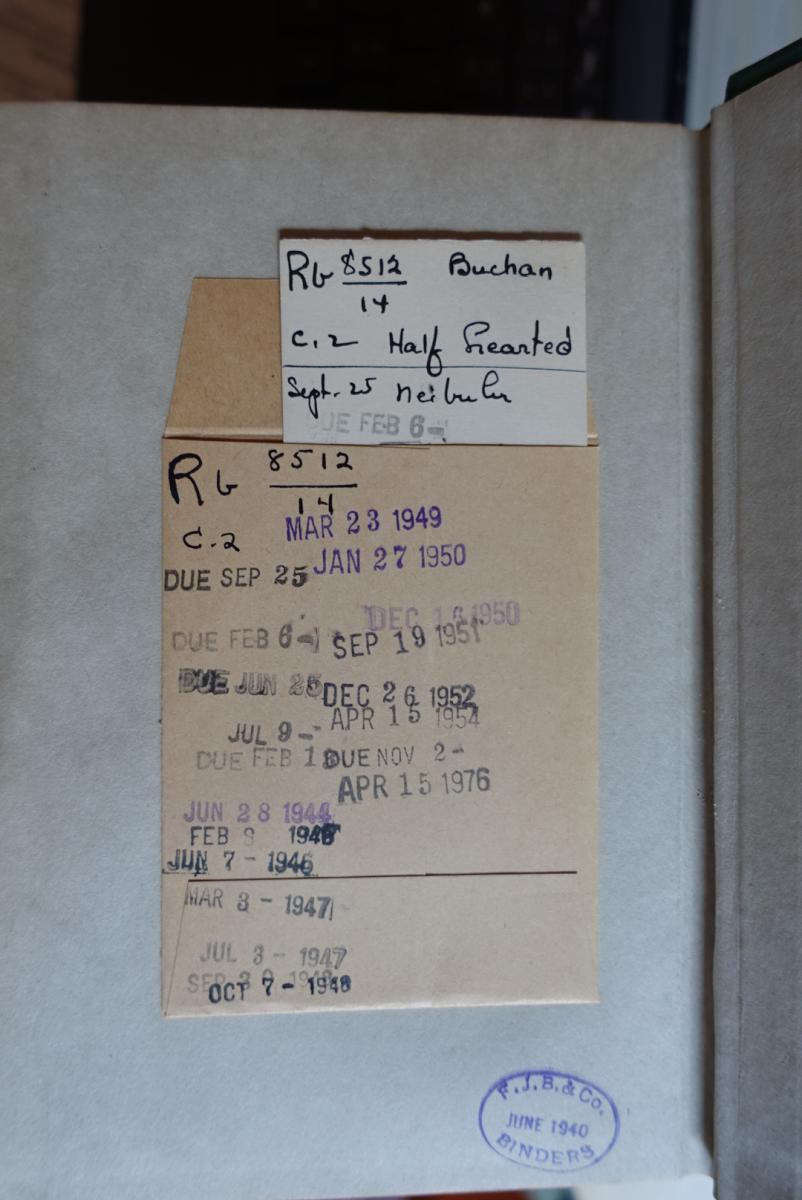 Rb 8512 Buchan
14
c.2 Half Hearted
Sept. 25 Neibuhr
DUE FEB 6-
Rb 8512
14
c.2
MAR 23 1949
JAN 27 1950
DUE SEP 25
DEC 1 1950
DUE FEB 6-
SEP 19 1951
DUE JUN 25
DEC 26 1952
APR 15 1954
JUL 9-
DUE FEB 1
DUE NOV 2-
APR 15 1976
JUN 28 1944
FEB
JUN 7 - 1946
MAR 3 - 1947
JUL 3 - 1947
SEP
OCT 7 - 1948
F.J.B. & Co.
JUNE 1940
BINDERS